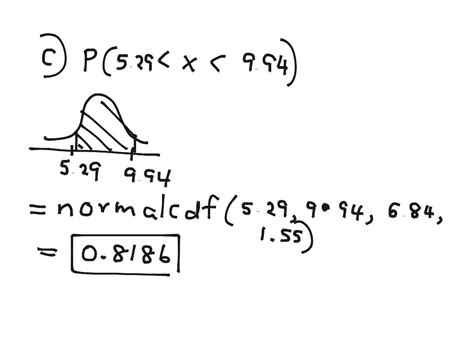 c) P(5.29 < x < 9.94)
5.29 9.94
= normalcdf(5.29, 9.94, 6.84,
1.55)
= 0.8186